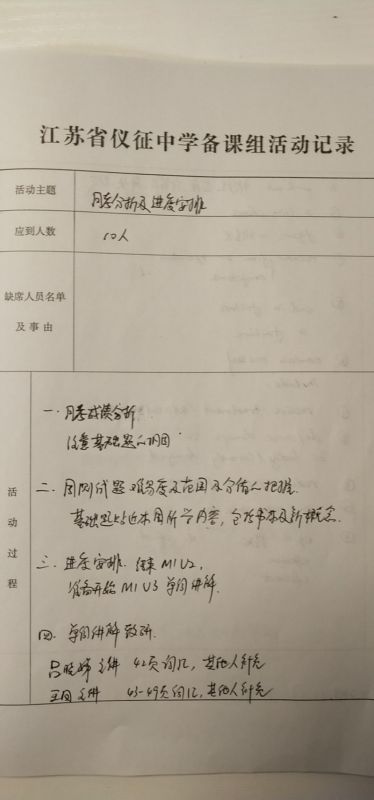 江苏省仪征中学备课组活动记录
活动主题
月考分析及进度安排
应到人数
10人
缺席人员名单
及事由
活动过程
一.月考成绩分析.
注意基础题的巩固
二.周测试题难易度及范围及分值的把握.
基础题占近本周所学内容,包括书本及新概念.
三.进度安排.结束M1U2,
准备开始M1U3单词讲解.
四.单词讲解教研.
主讲 42页词汇,其他人补充
王 主讲 43-49页词汇,其他人补充